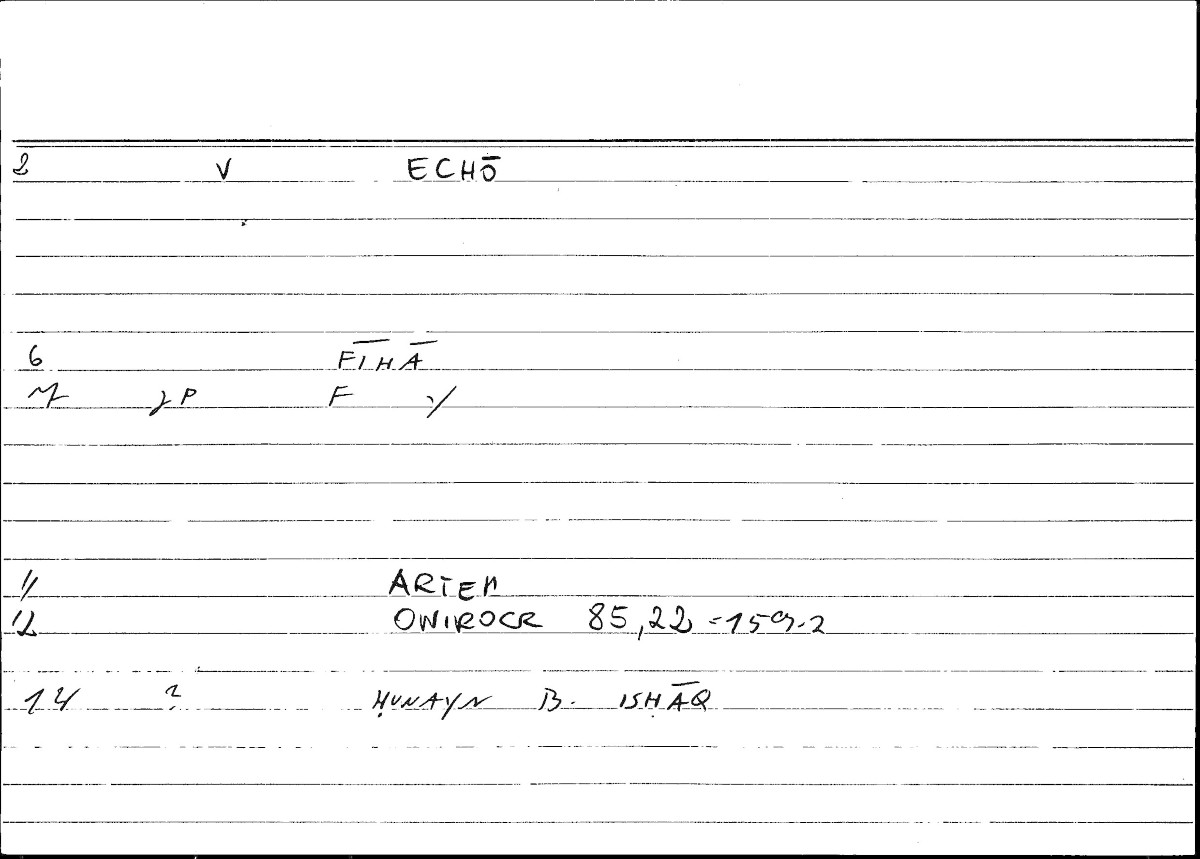 2 V ECHŌ
6 FĪHĀ
F
11 ARTEM
12 ONIROCR 85,22 = 159.2
14 ? ḤUNAYN B. ISḤĀQ